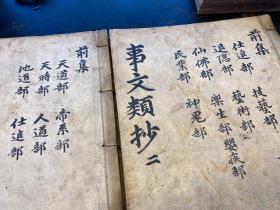 前集
技藝部
仕進部 藝術部 嬰疾部
退隱部 樂生部
仙佛部 神鬼部
民業部
事文類抄 二
前集
天道部 帝系部
天時部 人道部
地道部 仕進部